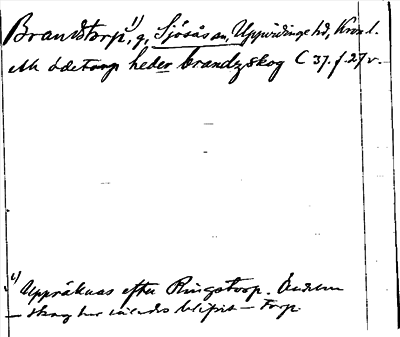 Brandstorp,¹⁾ g, Sjösås sn, Uppvidinge hd, Kron. l.
ett ödetorp heder brandzskog C 37. f. 27 v.
¹⁾ Uppräknas efter Ringstorp. Ändelsen
– skog har blifvit – torp